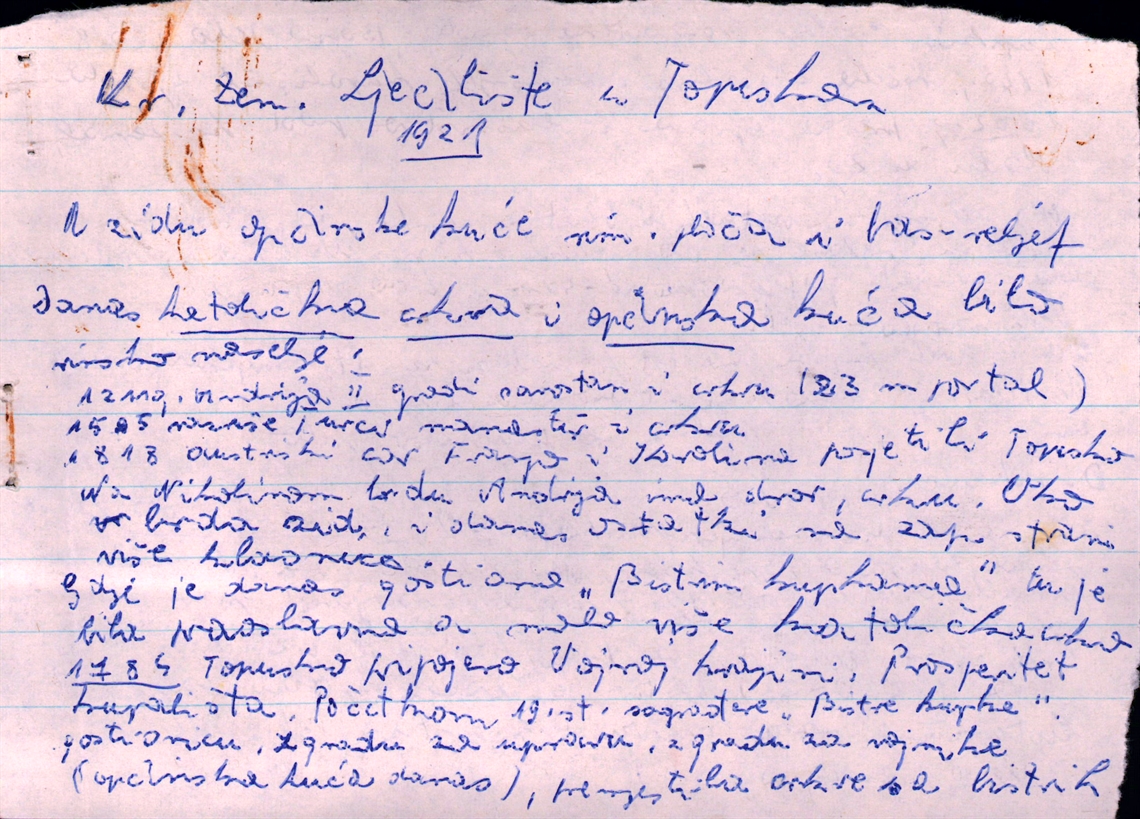 Kr. Zem. Lječilište u Topuskom
1921
U zidu općinske kuće rim. ploča i bas-reljef
Danas katolička crkva i općinska kuća bilo
rimsko naselje.
1211 g. Andrija II gradi samostan i crkvu (33 m portal)
ruše Turci manastir i crkvu
1818 austrski car Franjo i Karolina posjetili Topusko
Na Nikolinom brdu Andrija ima dvor, crkvu. Oko
brda zid, i danas ostatki na zap. strani
više klaonice
Gdje je danas gostiona „Bistrim kupkama" tu je
bila pravoslavna a malo više katolička crkva
1785 Topusko pripojeno Vojnoj krajini. Prosperitet
kupališta. Početkom 19. st. sagrađene „Bistre kupke"
gostionicu, zgradu za upravu, zgradu za vojnike
(općinska kuća danas), premještila crkve sa bistrih